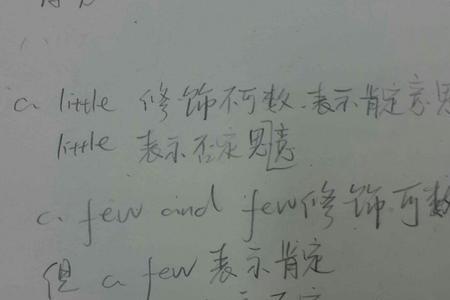 a little 修饰不可数.表示肯定意思
little 表示否定思意
a few and few修饰可数
但 a few 表示肯定